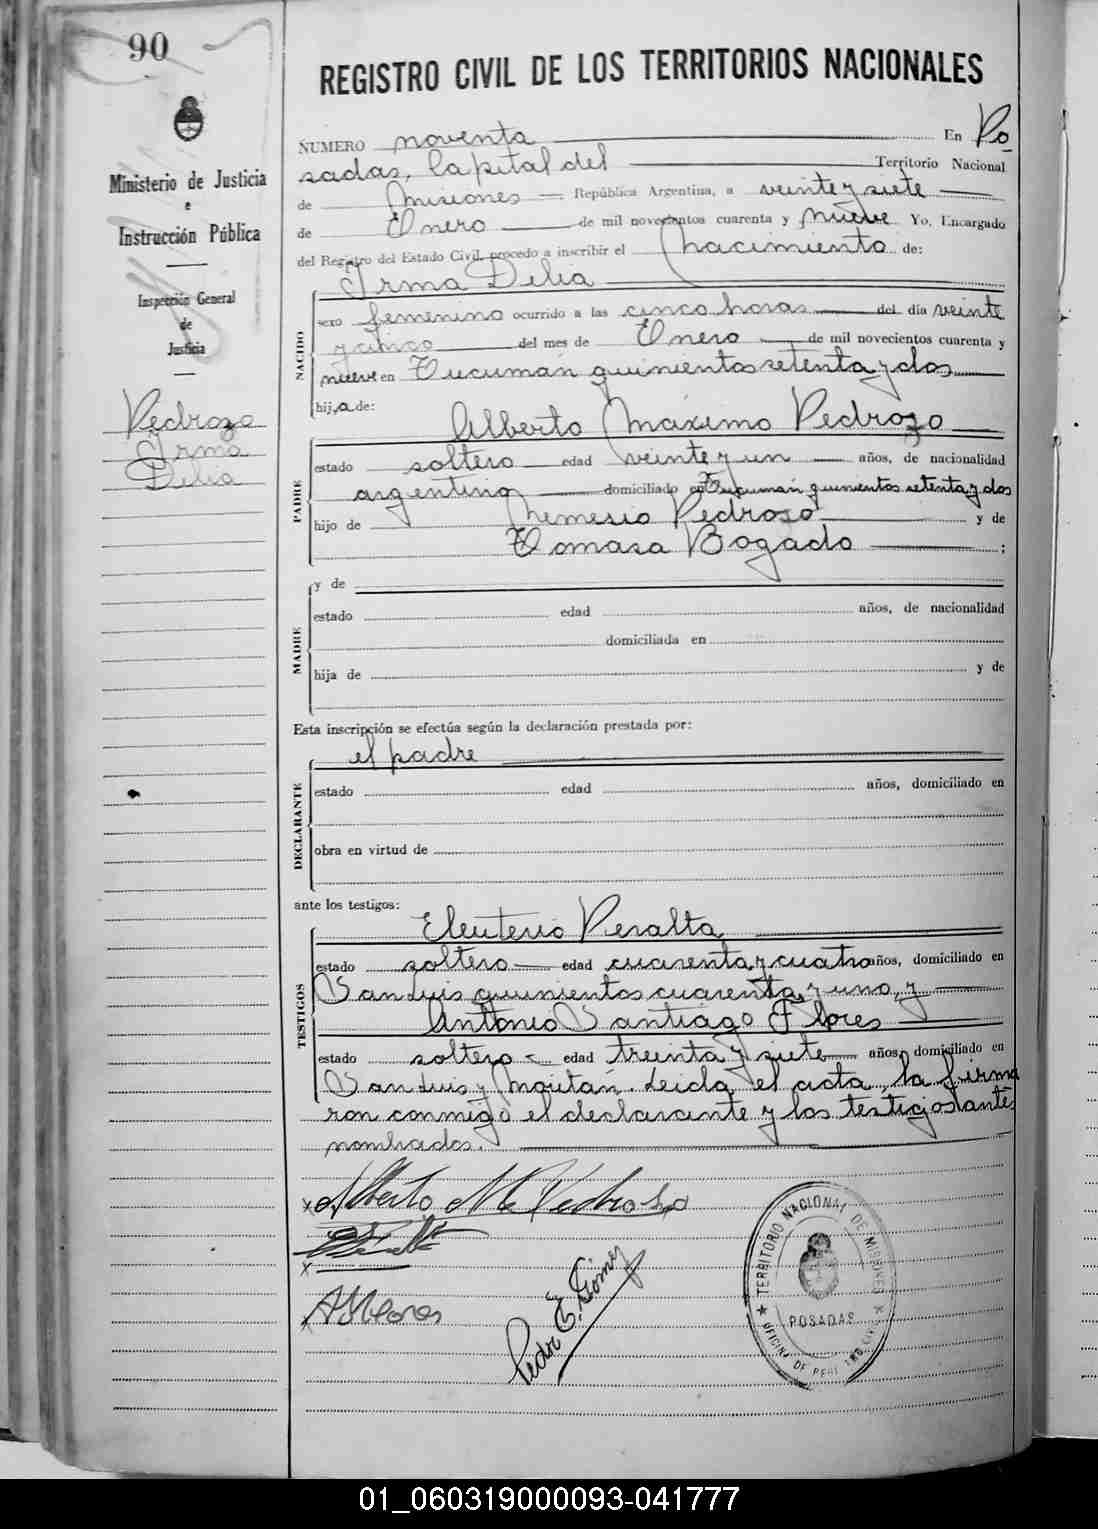 90
REGISTRO CIVIL DE LOS TERRITORIOS NACIONALES
Ministerio de Justicia
e
Instrucción Pública
Inspección General
de
Justicia
Pedrozo
Irma
Delia
NUMERO noventa En Po
sadas, Capital del Territorio Nacional
de Misiones República Argentina, a veinte y siete
de Enero de mil novecientos cuarenta y nueve Yo, Encargado
del Registro del Estado Civil, procedo a inscribir el nacimiento de:
Irma Delia
NACIDO
sexo femenino ocurrido a las cinco horas del día veinte
y cinco del mes de Enero de mil novecientos cuarenta y
nueve en Tucumán quinientos setenta y dos
hija de:
Alberto Máximo Pedrozo
PADRE
estado soltero edad veinte y un años, de nacionalidad
argentino domiciliado en Tucumán quinientos setenta y dos
hijo de Nemesio Pedroso y de
Tomasa Bogado ;
MADRE
y de
estado edad años, de nacionalidad
domiciliada en
hija de y de
Esta inscripción se efectúa según la declaración prestada por:
el padre
DECLARANTE
estado edad años, domiciliado en
obra en virtud de
ante los testigos:
TESTIGOS
Eleuterio Peralta
estado soltero edad cuarenta y cuatro años, domiciliado en
San Luis quinientos cuarenta y uno, y
Antonio Santiago Flores
estado soltero edad treinta y siete años, domiciliado en
San Luis y Maitán. Leida el acta, la firma
ron conmigo el declarante y los testigos antes
nombrados.
Alberto M. Pedroso
A S Flores
Pedro E. Gómez
TERRITORIO NACIONAL DE MISIONES
POSADAS
OFICINA DE REGISTRO CIVIL
01_060319000093-041777